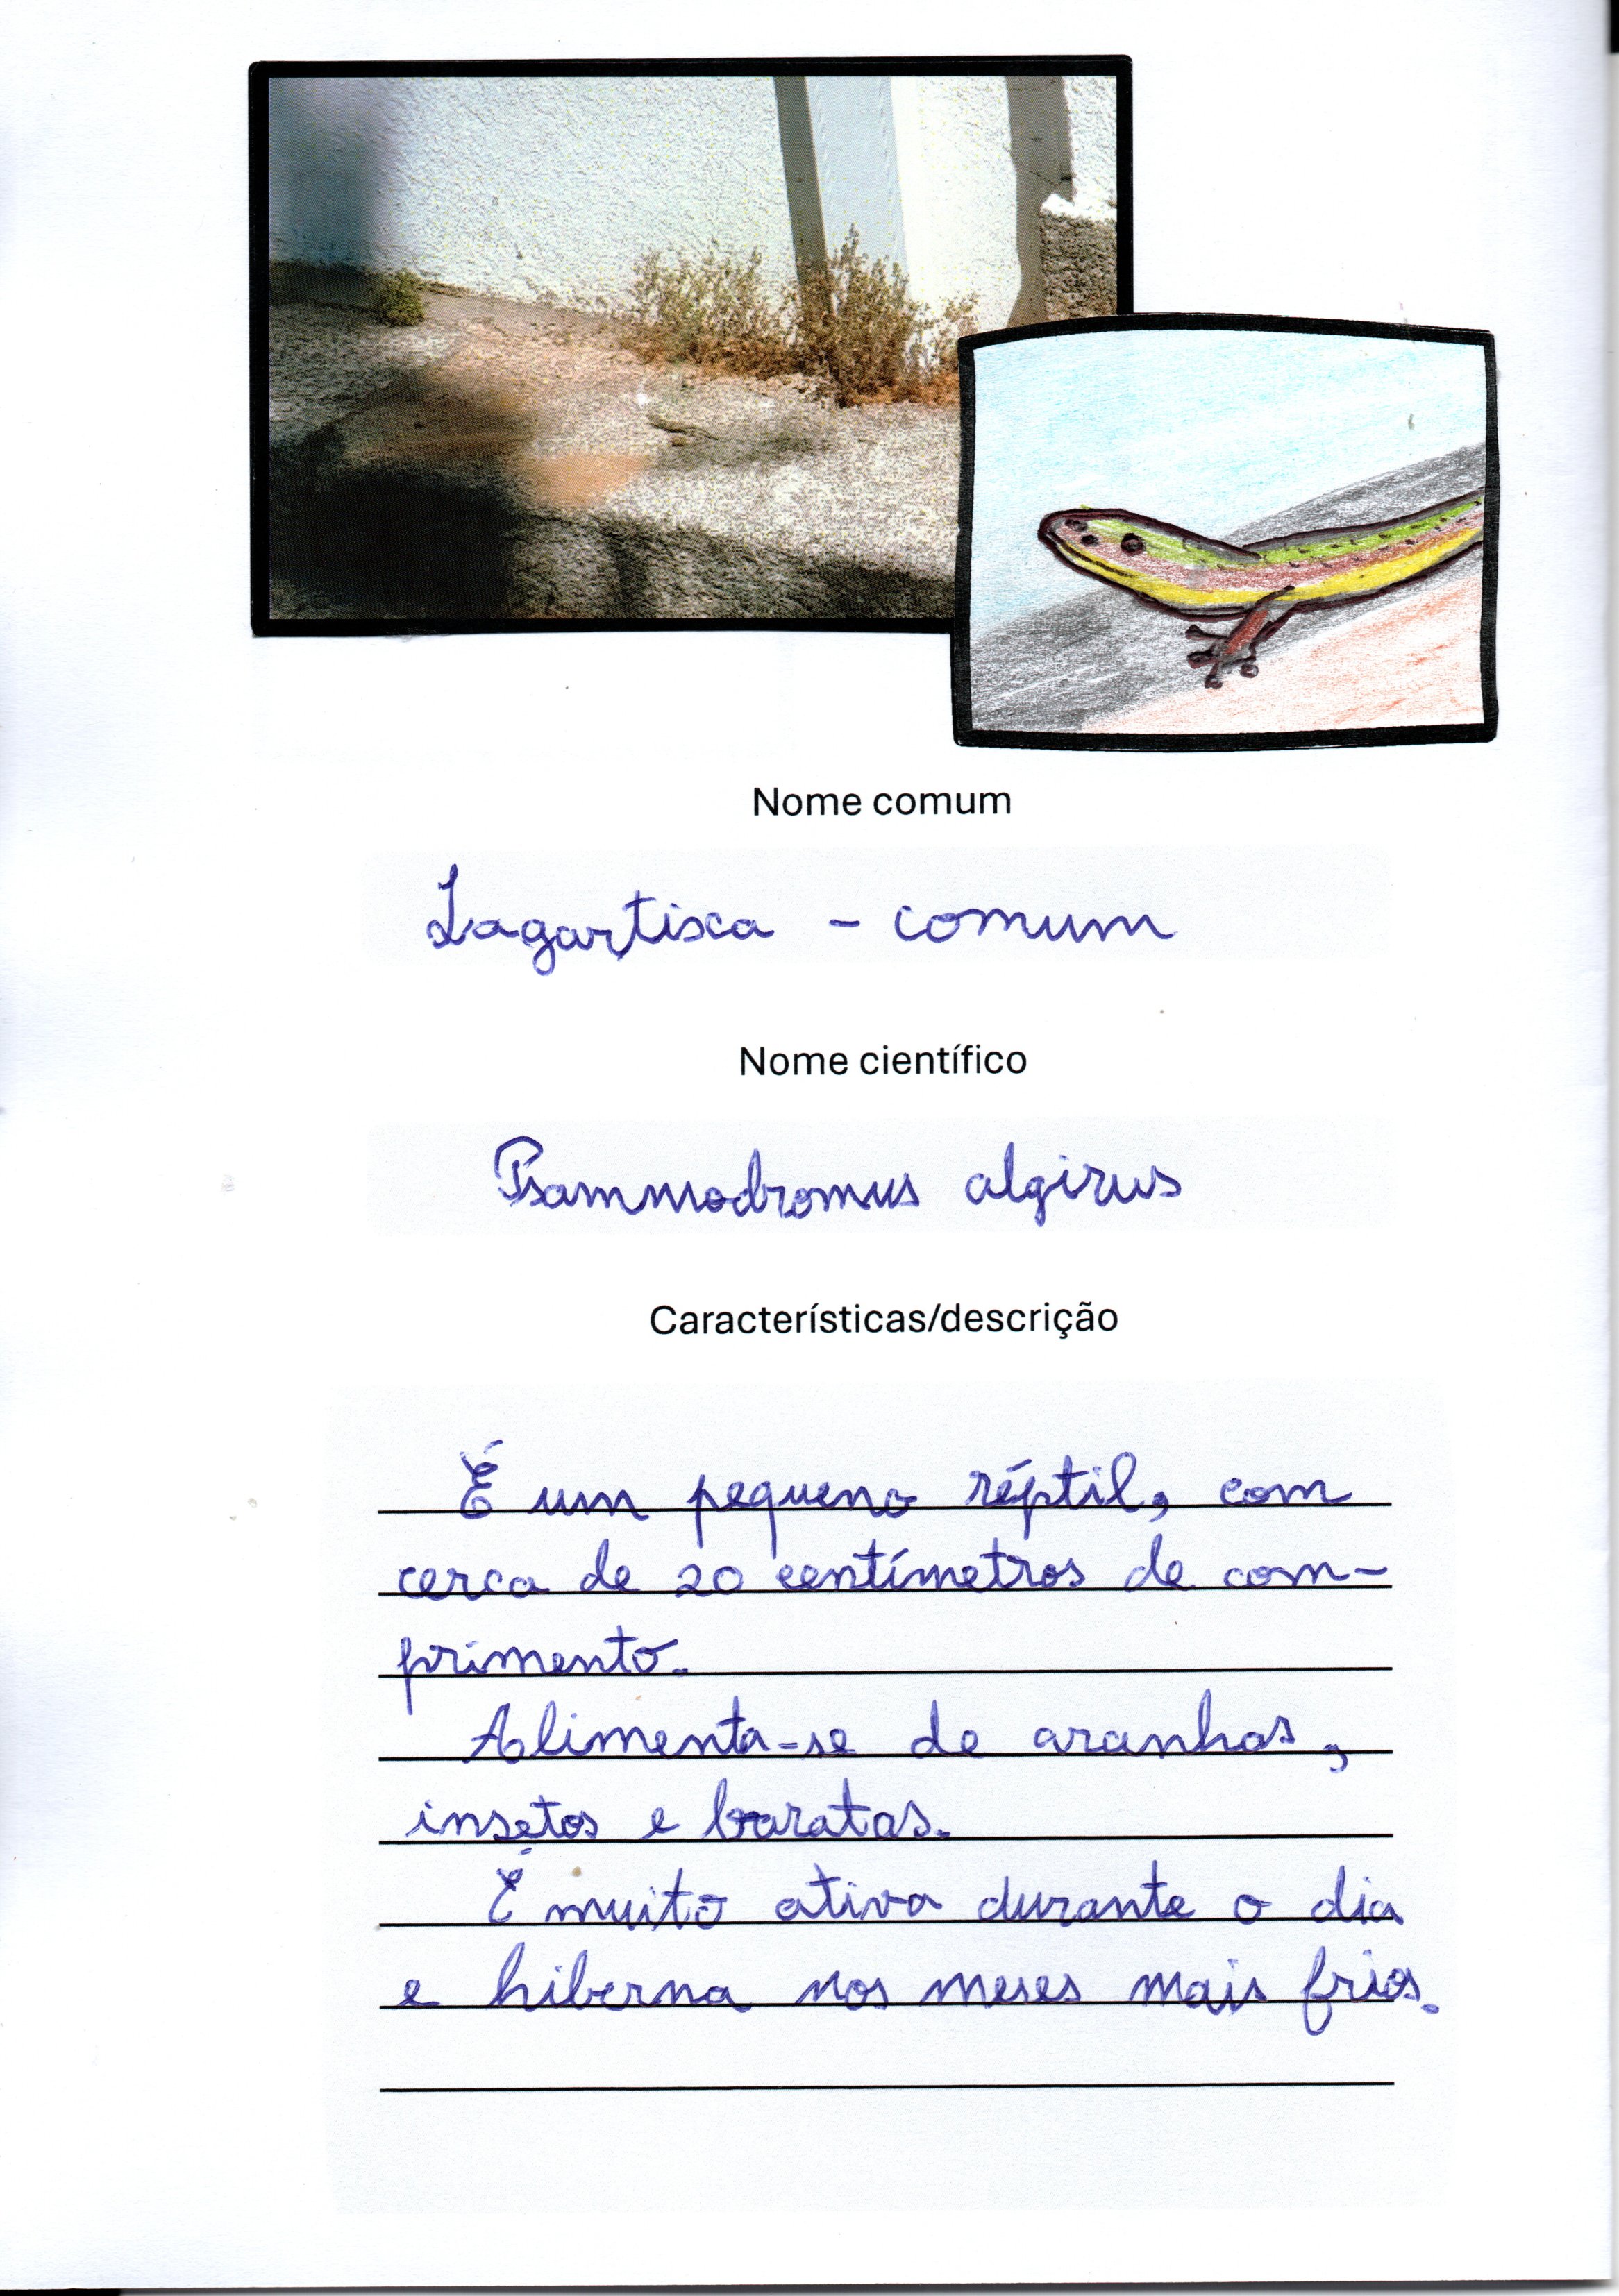 Nome comum
Lagartixa - comum
Nome científico
Psammodromus algirus
Características/descrição
É um pequeno réptil, com
cerca de 20 centímetros de com-
primento.
Alimenta-se de aranhas,
insetos e baratas.
É muito ativa durante o dia
e hiberna nos meses mais frios.